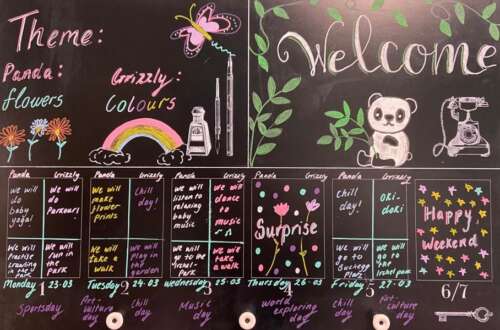 Theme:
Panda:
flowers
Grizzly:
Colours
Welcome
Panda Grizzly Panda Grizzly Panda Grizzly Panda Grizzly Panda Grizzly
We will
do
baby
yoga!
We will
do
Parkour!
We will
make
flower
prints
Chill
day!
We will
listen to
relaxing
baby
music
We will
dance
to
music
Surprise
Chill
day!
Oki-
doki
Happy
Weekend
We will
Practice
crawling
in the
We will
run in the
Park
We will
take a
walk
We will
Play in
the
garden
We will
go to
the
Park
We will
take
a walk
We will
go to
We will
go to
the
park
Monday 1 23-03
Tuesday 2 24-03
Wednesday 3 25-03
Thursday 4 26-03
Friday 5 27-03
6/7
Sportsday
Art-
culture
day
Chill
day
Music
day
World
exploring
day
Chill
day
Art-
Culture
day